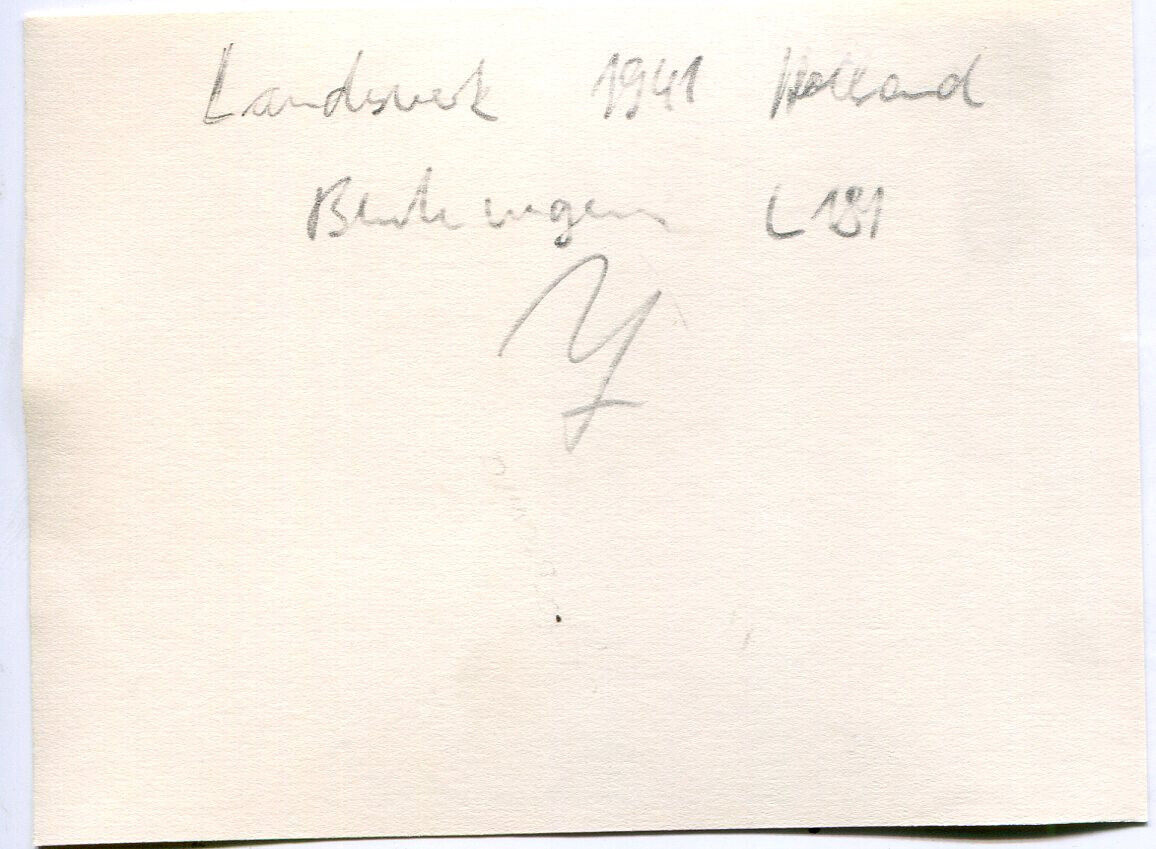 Landsverk 1941 Holland
Beutewagen L 181
Y